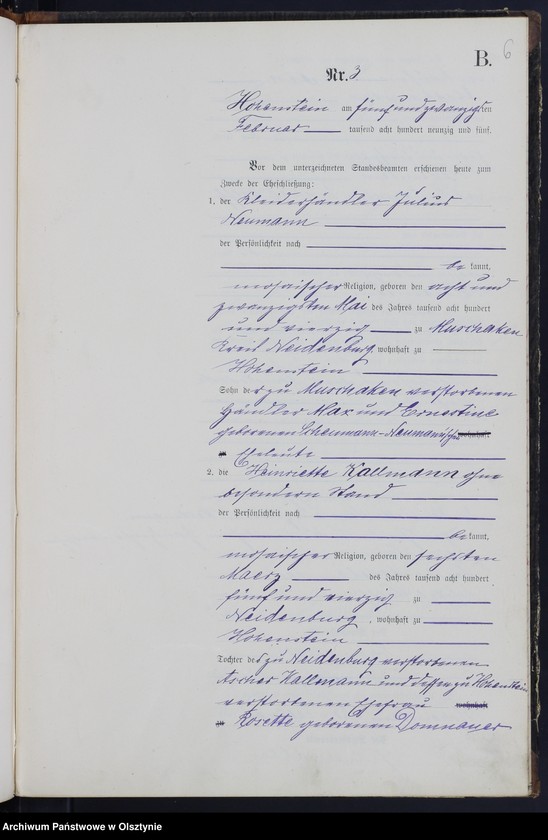 B.
6
Nr. 3
Hohenstein am fünfundzwanzigsten
Februar tausend acht hundert neunzig und fünf.
Vor dem unterzeichneten Standesbeamten erschienen heute zum
Zwecke der Eheschließung:
1. der Kleiderhändler Julius
Neumann
der Persönlichkeit nach
be kannt,
mosaischer Religion, geboren den acht und
zwanzigsten Mai des Jahres tausend acht hundert
und vierzig zu Muschaken
Kreis Neidenburg, wohnhaft zu
Hohenstein
Sohn der zu Muschaken verstorbenen
Händler Max und Ernestine
geborenen Neumann'schen wohnhaft
Eheleute
2. die Heinriette Kallmann ohne
besondern Stand
der Persönlichkeit nach
be kannt,
mosaischer Religion, geboren den sechsten
Maerz des Jahres tausend acht hundert
fünf und vierzig zu
Neidenburg, wohnhaft zu
Hohenstein
Tochter des zu Neidenburg verstorbenen
Ascher Kallmann und dessen zu Hohenstein
verstorbenen Ehefrau wohnhaft
Rosette geborenen Domnauer
Archiwum Państwowe w Olsztynie